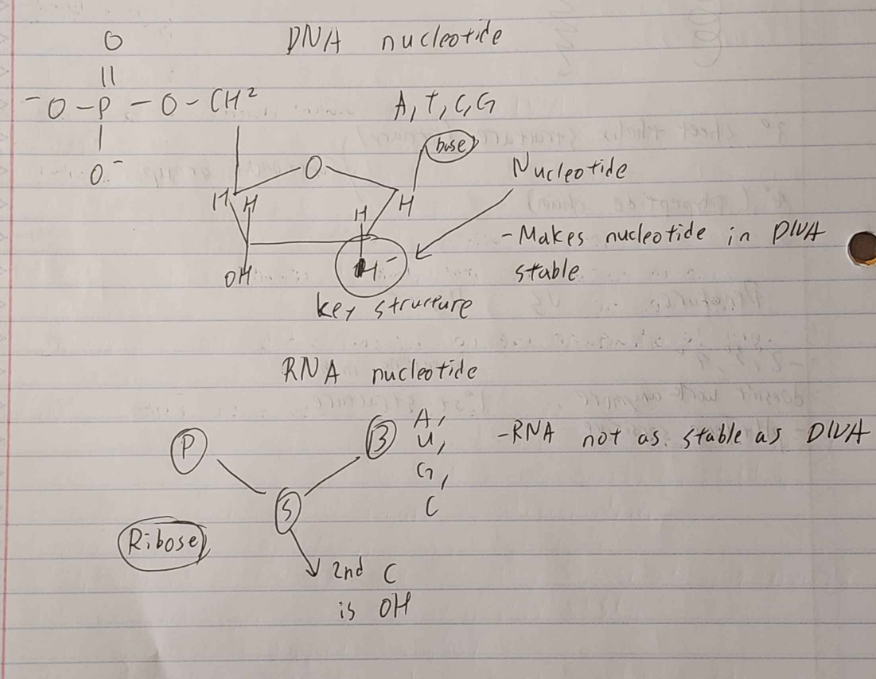 DNA nucleotide
O
||
-O-P-O-CH²
|
O-
A, T, C, G
base
O
H H
H
H
OH
H-
key structure
Nucleotide
-Makes nucleotide in DNA
stable
RNA nucleotide
P
B
A,
U,
G,
C
S
Ribose
2nd C
is OH
-RNA not as stable as DNA